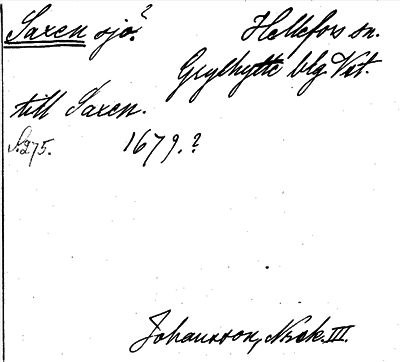 Saxen sjö?
Hellefors sn.
Grythytte blg Vst.
till Saxen.
S. 275. 1679.?
Johansson, Norsk. III.